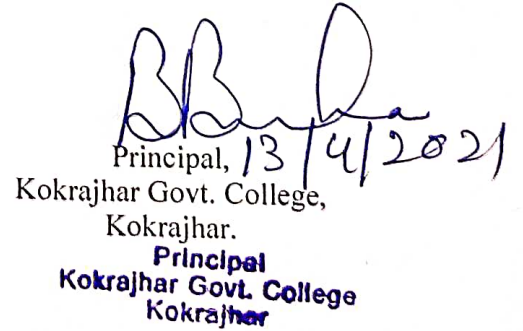 Principal, 13/4/2021
Kokrajhar Govt. College,
Kokrajhar.
Principal
Kokrajhar Govt. College
Kokrajhar